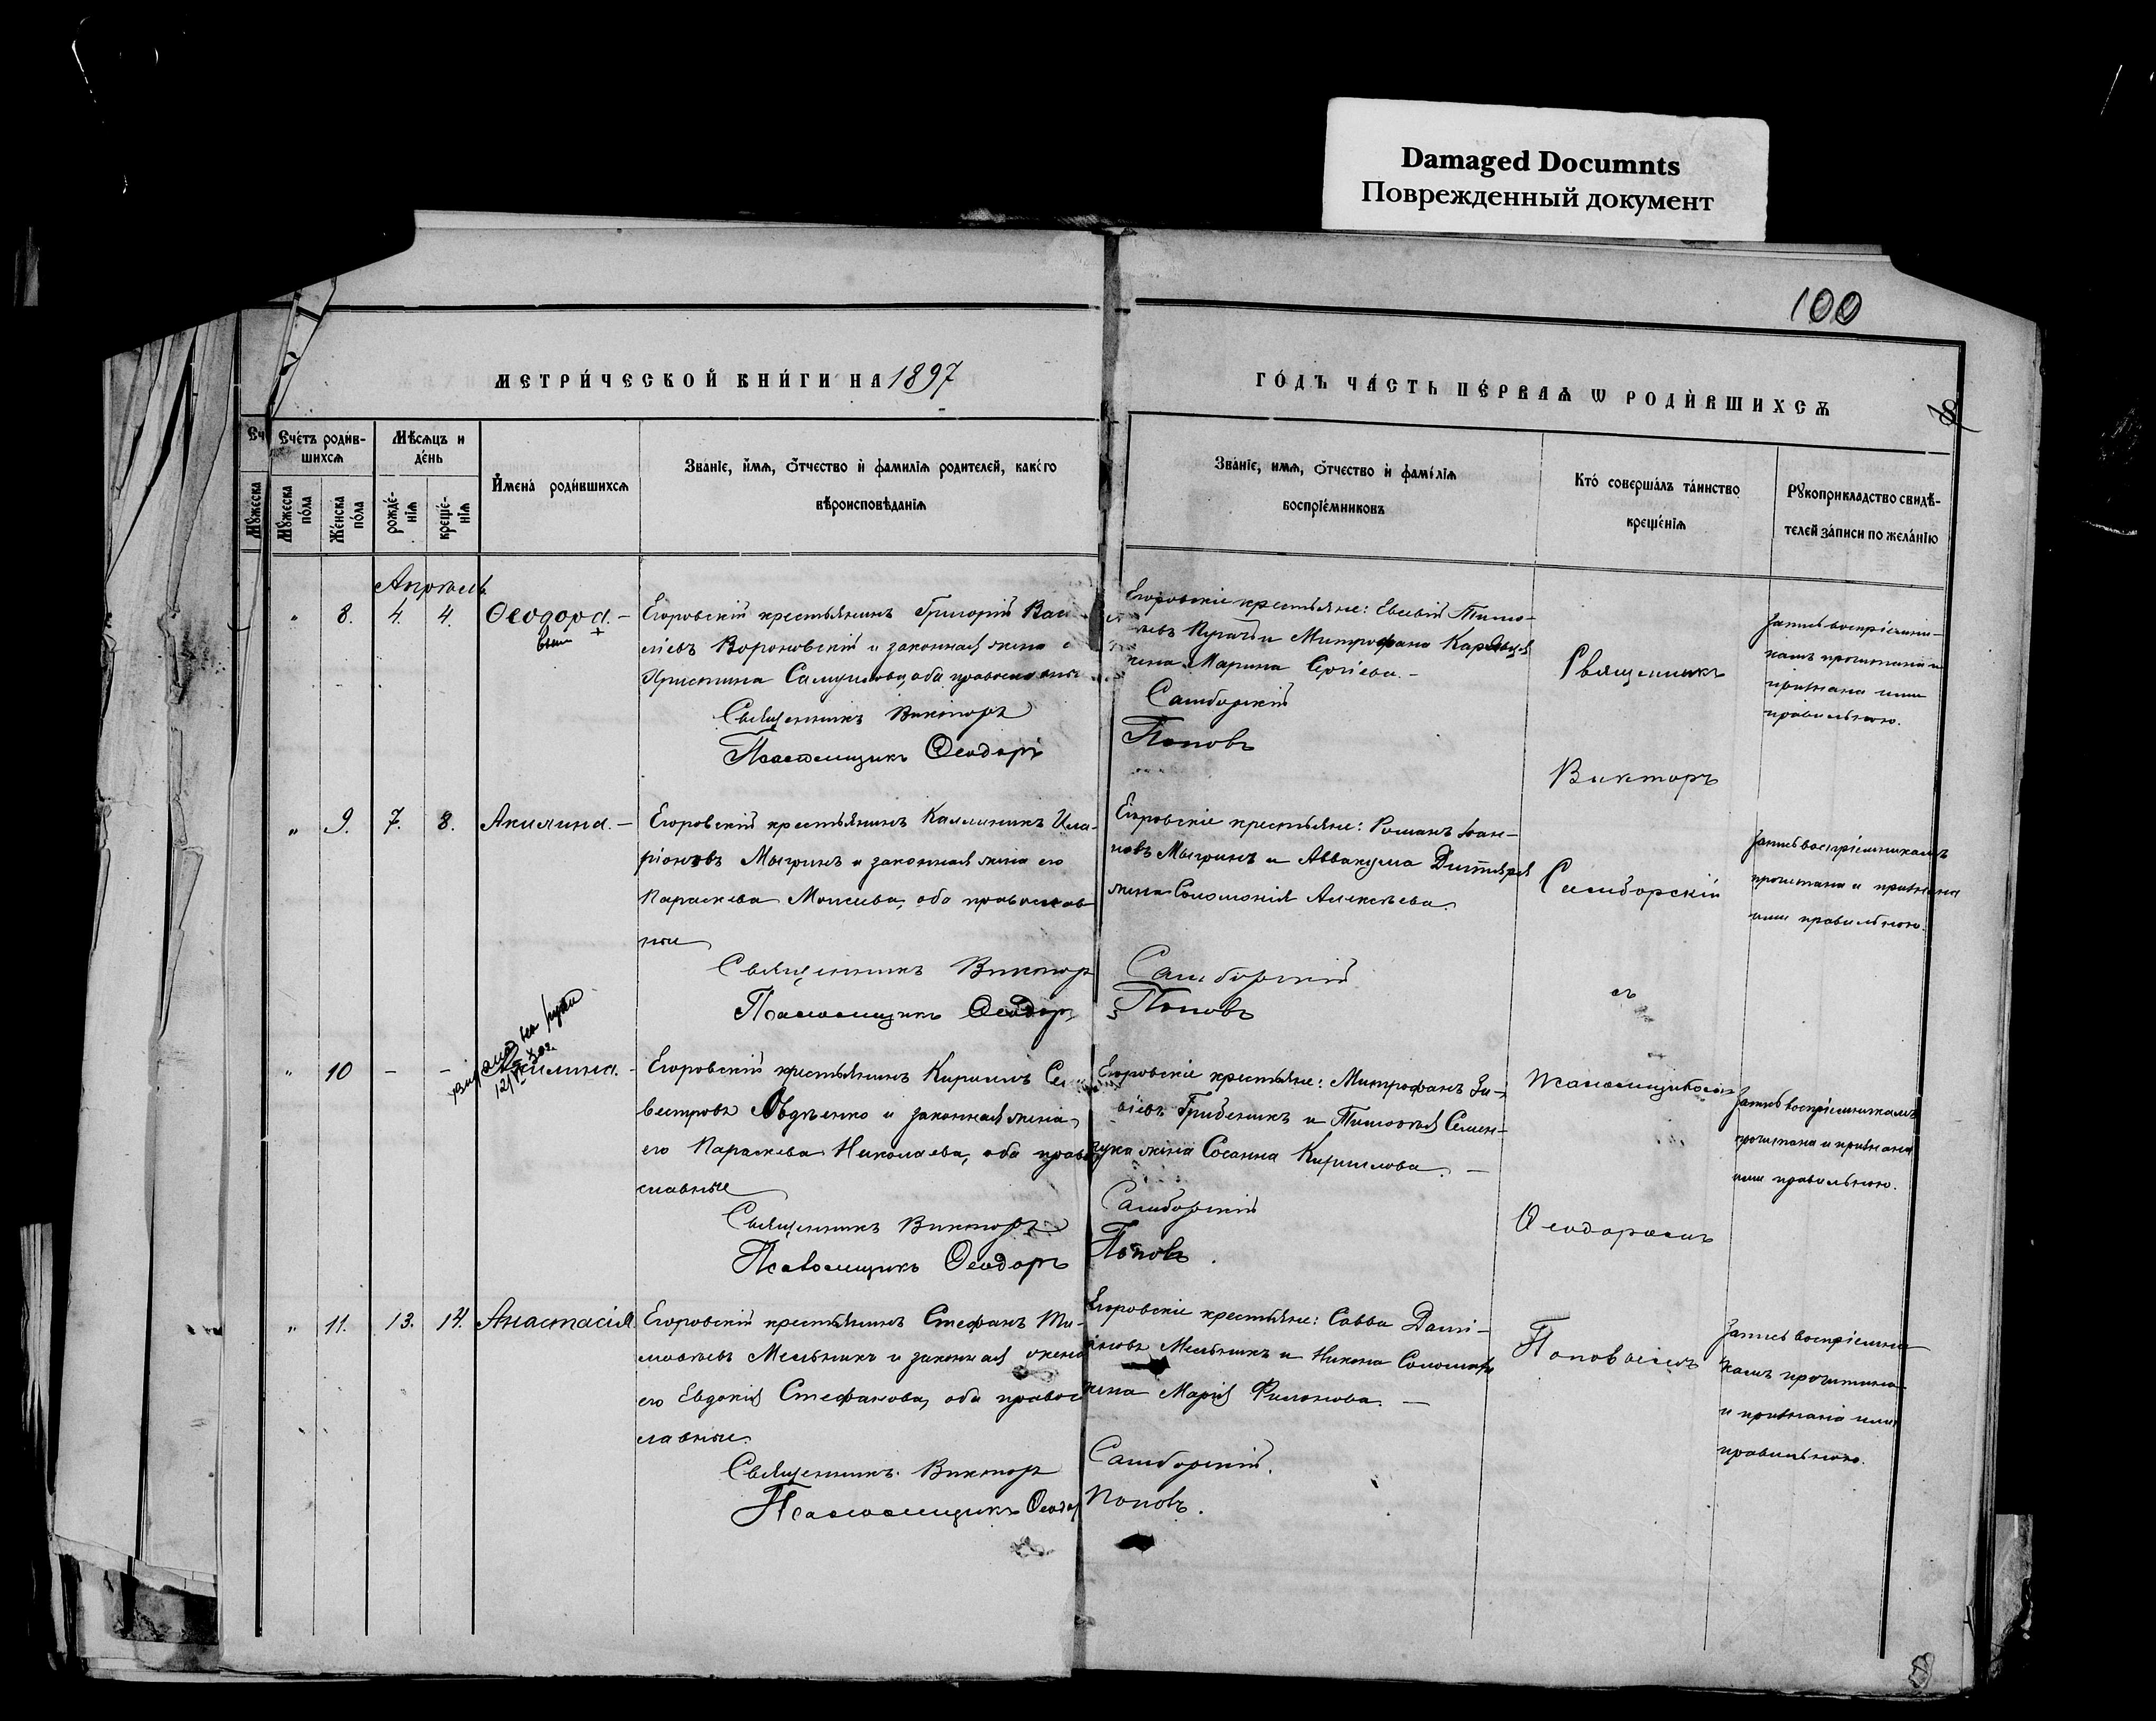 Damaged Documnts
Поврежденный документ
100
МЕТРИ́ЧЕСКОЙ КНИ́ГИ НА 1897
ГО́ДЪ ЧА́СТЬ ПЕ́РВАѦ Ѡ РОДИ́ВШИХСѦ
8
Сч
Мꙋжеска
Сче́тъ роди́в-
шихсѧ
Мꙋжеска
по́ла
Же́нска
по́ла
Мѣ́сѧцъ и
де́нь
рожде́-
нїѧ
креще́-
нїѧ
И҆мена́ роди́вшихсѧ
Зва́нїе, и҆́мѧ, ѻ҆́тчество и҆ фами́лїѧ родителей, како́го
вѣроисповѣ́данїѧ
Зва́нїе, имѧ, ѻ҆́тчество и҆ фамі́лїѧ
воспрїе́мниковъ
Кто́ соверша́лъ та́инство
креще́нїѧ
Рꙋкоприкладство свидѣ́-
телей за́писи по жела́нїю
Апрѣль
" 8. 4. 4. Ѳеодора. –
Егоровскій крестьянинъ Григорій Васи
ліевъ Вороновскій и законная жена е
Христина Самуилова, оба православные
Священникъ Викторъ
Псаломщикъ Ѳеодоръ
Егоровскіе крестьяне: Евсевій Тимо-
ѳеевъ Пугачъ и Митрофана
жена Марина Сергіева. –
Самборскій
Поповъ
Священникъ
Викторъ
Самборскій
съ
псаломщикомъ
Ѳеодоромъ
Поповымъ
Запись воспріемни-
камъ прочитана и
признана ими
правильною.
" 9. 7. 8. Акилина. –
Егоровскій крестьянинъ Каллиникъ Ила-
ріоновъ Мыгринъ и законная жена его
Параскева Моисеева, оба православ
ные
Священникъ Виктор
Псаломщикъ Ѳеодор
Егоровскіе крестьяне: Романъ Іоан-
новъ Мыгринъ и Аввакума
жена Соломонія Алексѣева.
Самборскій
Поповъ
Запись воспріемникамъ
прочитана и признана
ими правильною.
" 10 – – Акилина. –
Егоровскій крестьянинъ Кириллъ Се
вестровъ Дѣдченко и законная жена
его Параскева Николаева, оба право
славные
Священникъ Викторъ
Псаломщикъ Ѳеодоръ
Егоровскіе крестьяне: Митрофанъ Зи-
віевъ Грибеникъ и Тимоѳея Семен-
чука жена Сосанна Кириллова. –
Самборскій
Поповъ.
Запись воспріемникамъ
прочитана и признана
ими правильною.
" 11. 13. 14. Анастасія.
Егоровскій крестьянинъ Стефанъ Ти-
моѳеевъ Мельникъ и законная жена
его Евдокія Стефанова, оба правос
лавные.
Священникъ Викторъ
Псаломщикъ Ѳеодор
Егоровскіе крестьяне: Савва Дами-
ановъ Мельникъ и Никона
жена Марія Филонова. –
Самборскій.
Поповъ.
Запись воспріемни-
камъ прочитана
и признана ими
правильною.